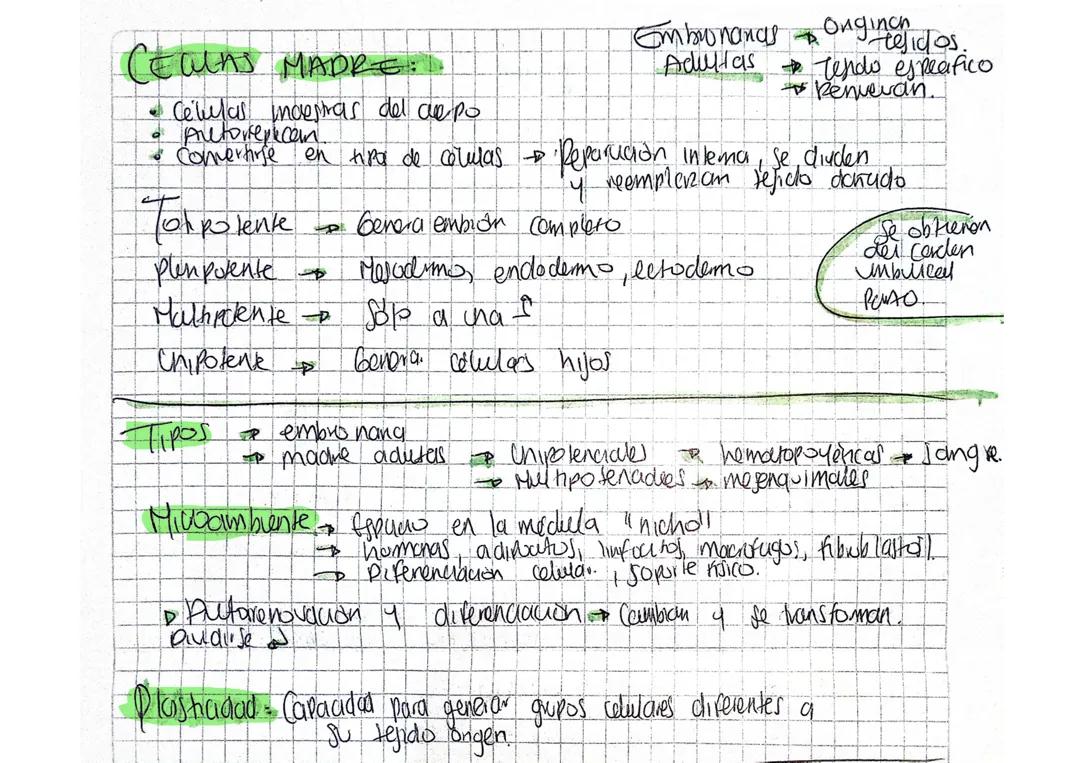 CELULAS MADRE:
Embrionarias → Originan tejidos.
Adultas → Tejido especifico
→ Renuevan.
• Células maestras del cuerpo
• Autoreplican.
• Convertirse en tipo de células → Reparación interna, se dividen
y reemplazan tejido dañado
Totipotente → Genera embrión completo
Pluripotente → Mesodermo, endodermo, ectodermo
Multipotente → Sólo a una ↑
Unipotente → Genera células hijos
Se obtienen
del cordon
umbilical
Tipos → embrionaria
→ madre adultas → Unipotenciales → hematopoyéticas → Sangre.
→ Multipotenciales → mesenquimales
Microambiente → Espacio en la médula "nicho"
→ hormonas, adipocitos, linfocitos, macrofagos, fibroblastos.
→ Diferenciación celular, soporte físico.
Autorenovación y diferenciación → Cambian y se transforman.
Dividirse
Plasticidad: Capacidad para generar grupos celulares diferentes a
su tejido origen.